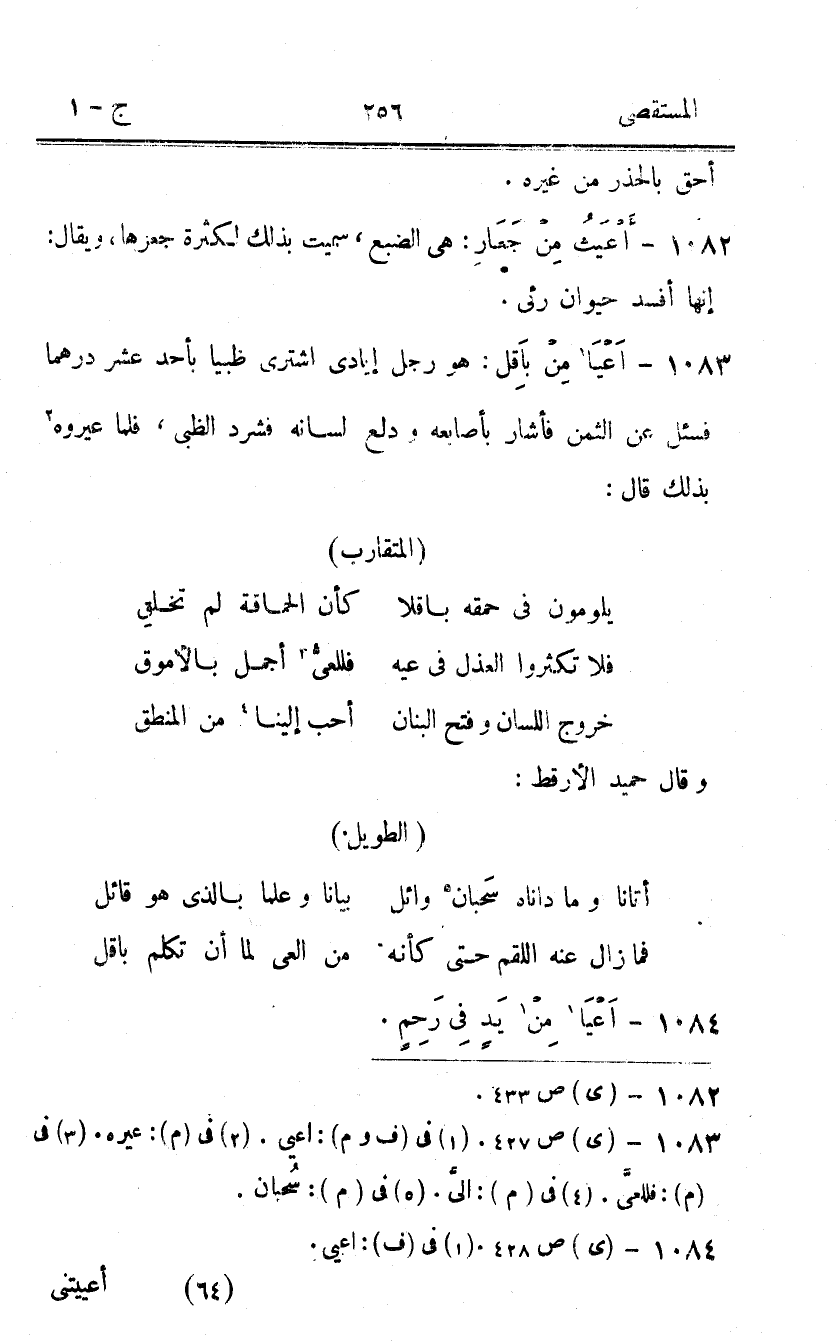 المستقصى ٢٥٦ ج - ١
أحق بالحذر من غيره .
١٠٨٢ - أَعْيَثُ مِنْ جَعَارِ : هى الضبع ، سميت بذلك لكثرة جعرها ، ويقال :
إنها أفسد حيوان رئى .
١٠٨٣ - اَعْيَا١ مِنْ بَاَقِل : هو رجل إيادى اشترى ظبيا بأحد عشر درهما
فسئل عن الثمن فأشار بأصابعه و دلع لسانه فشرد الظبى ، فلما عيروه٢
بذلك قال :
(المتقارب)
يلومون فى حمقه باقلا كأن الحماقة لم تخلق
فلا تكثروا العذل فى عيه فللعىُّ٣ أجمل بالأموق
خروج اللسان و فتح البنان أحب إلينا٤ من المنطق
و قال حميد الأرقط :
( الطويل )
أتانا و ما داناه سَحبان٥ وائل بيانا و علما بالذى هو قائل
فما زال عنه اللقم حتى كأنه من العى لما أن تكلم باقل
١٠٨٤ - اَعْيَا١ مِنْ يَدٍ فِى رَحِمٍ .
١٠٨٢ - (ى) ص ٤٣٣ .
١٠٨٣ - (ى) ص ٤٢٧ . (١) فى (ف و م) : اعيي . (٢) فى (م) : عيره . (٣) فى
(م) : فللعىَّ . (٤) فى ( م ) : الىَّ . (٥) فى ( م ) : سُحبان .
١٠٨٤ - (ى) ص ٤٢٨ .(١) فى (ف) : اعيي .
(٦٤) أعييتنى